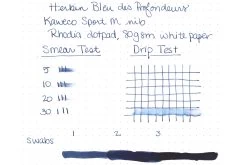 Herbin Bleu des Profondeurs
Kaweco Sport M nib
Rhodia dotpad, 80gsm white paper
Smear Test Drip Test
5
10
20
30
1 2 3
swabs